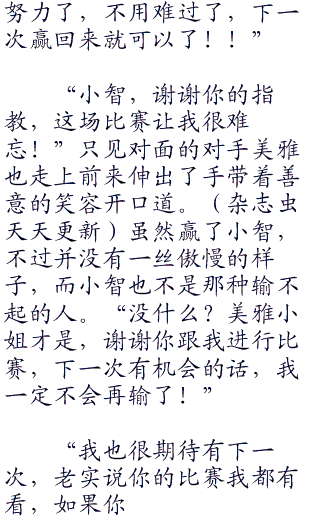 努力了，不用难过了，下一
次赢回来就可以了！！”
“小智，谢谢你的指
教，这场比赛让我很难
忘！”只见对面的对手美雅
也走上前来伸出了手带着善
意的笑容开口道。（杂志虫
天天更新）虽然赢了小智，
不过并没有一丝傲慢的样
子，而小智也不是那种输不
起的人。“没什么？美雅小
姐才是，谢谢你跟我进行比
赛，下一次有机会的话，我
一定不会再输了！”
“我也很期待有下一
次，老实说你的比赛我都有
看，如果你